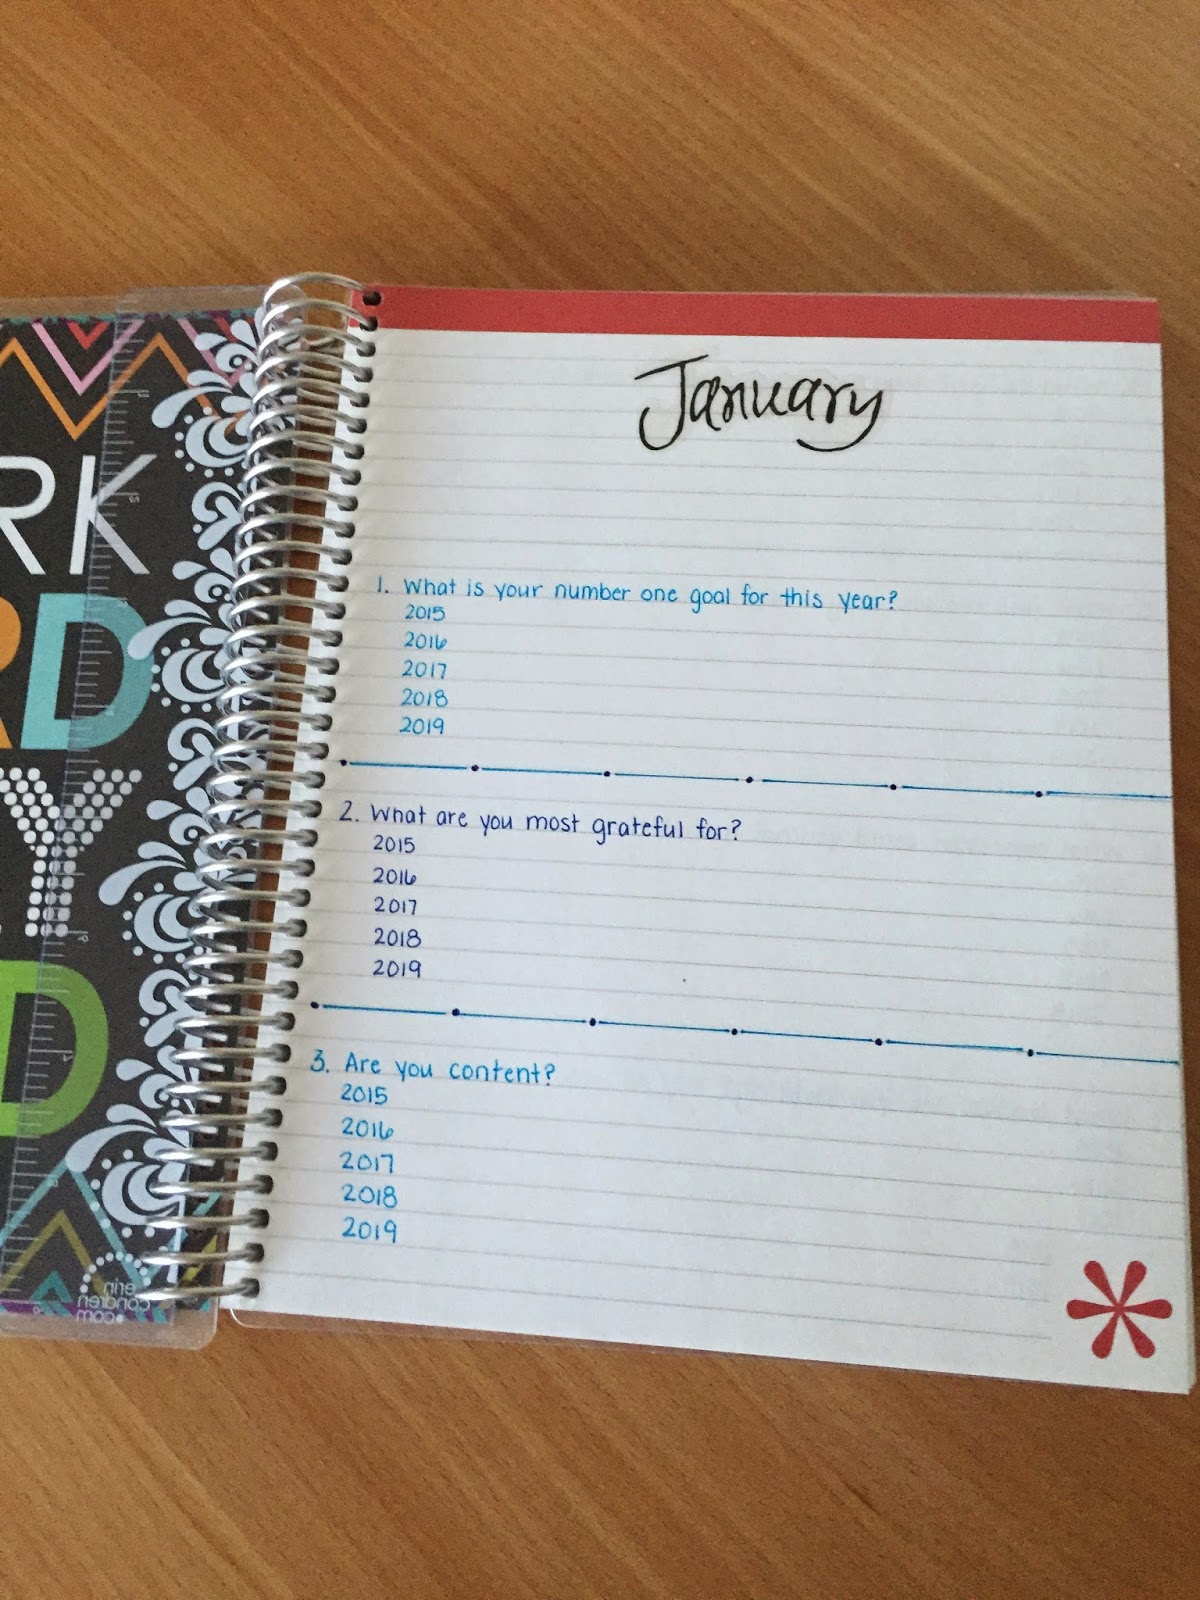 RK
RD
Y
D
erin
condren
.com
January
1. What is your number one goal for this year?
2015
2016
2017
2018
2019
2. What are you most grateful for?
2015
2016
2017
2018
2019
3. Are you content?
2015
2016
2017
2018
2019